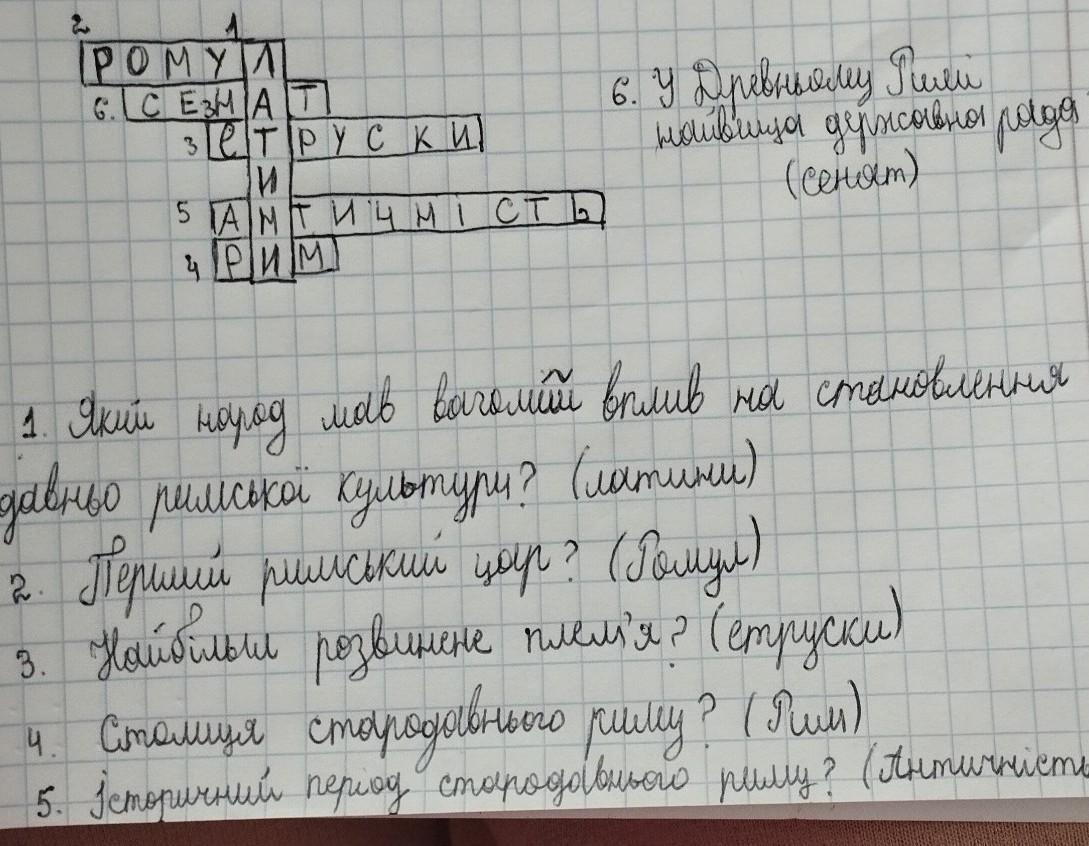 2 1
РОМУЛ
6. СЕНАТ
3 ЕТРУСКИ
И
5 АНТИЧНІСТЬ
4 РИМ
6. У Древньому Римі
найвища державна рада
(сенат)
1. Який народ мав вагомий вплив на становлення
давньо римської культури? (латини)
2. Перший римський цар? (Ромул)
3. Найбільш розвинене плем'я? (етруски)
4. Столиця стародавнього риму? (Рим)
5. Історичний період стародавнього риму? (Античність